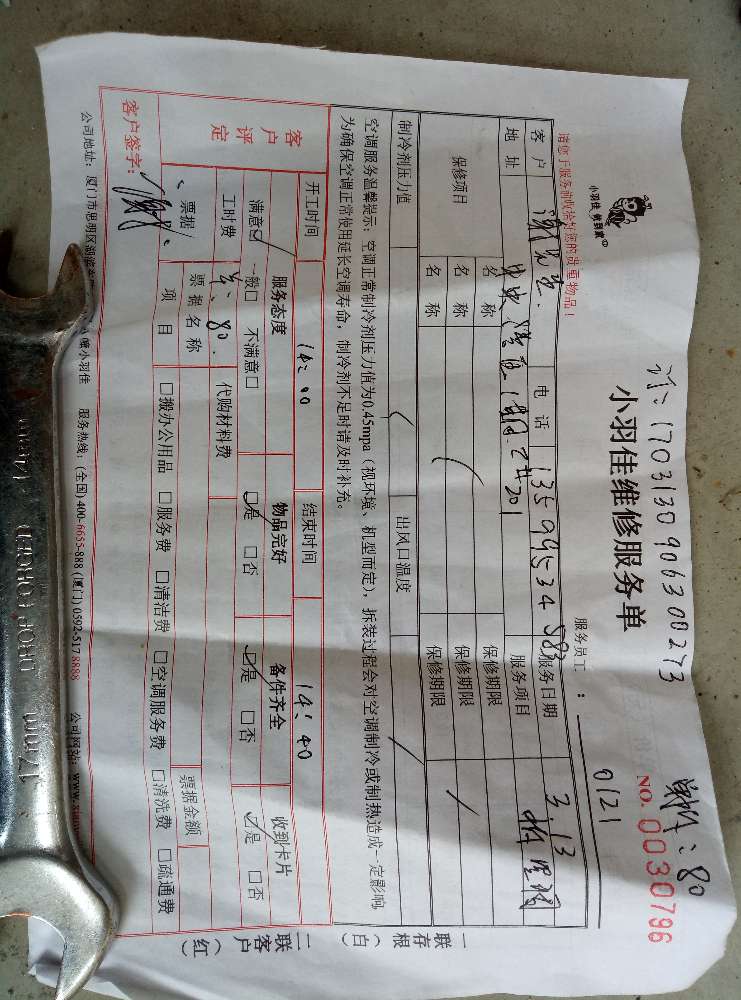 订：1703130906300273
单：80
小羽佳 傅尊家
小羽佳维修服务单
NO. 0030796
请您于服务前收拾好您的贵重物品！
服务员工：0121
客户 谢先生 电话 13599534583 服务日期 3.13
地址 2#201 服务项目
保修项目 名称 保修期限
名称 保修期限
名称 保修期限
制冷剂压力值 出风口温度
空调服务温馨提示：空调正常制冷剂压力值为0.45mpa（视环境、机型而定），拆装过程会对空调制冷或制热造成一定影响
为确保空调正常使用延长空调寿命，制冷剂不足时请及时补充。
开工时间 14:00 结束时间 14:40
客户评定
服务态度 物品完好 备件齐全 收到卡片
满意☑ 一般□ 不满意□ ☑是 □否 ☑是 □否 ☑是 □否
工时费 80. 代购材料费
票据 票据名称 票据金额
项目 □搬办公用品 □服务费 □清洁费 □空调服务费 □清洗费 □疏通费
客户签字：
公司地址：厦门市思明区 小羽佳 服务热线：(全国)400-6655-888 (厦门)0592-517 8898 公司网站：www.xiao
一联存根（白）
二联客户（红）
17mm
DROP FORGED
17mm